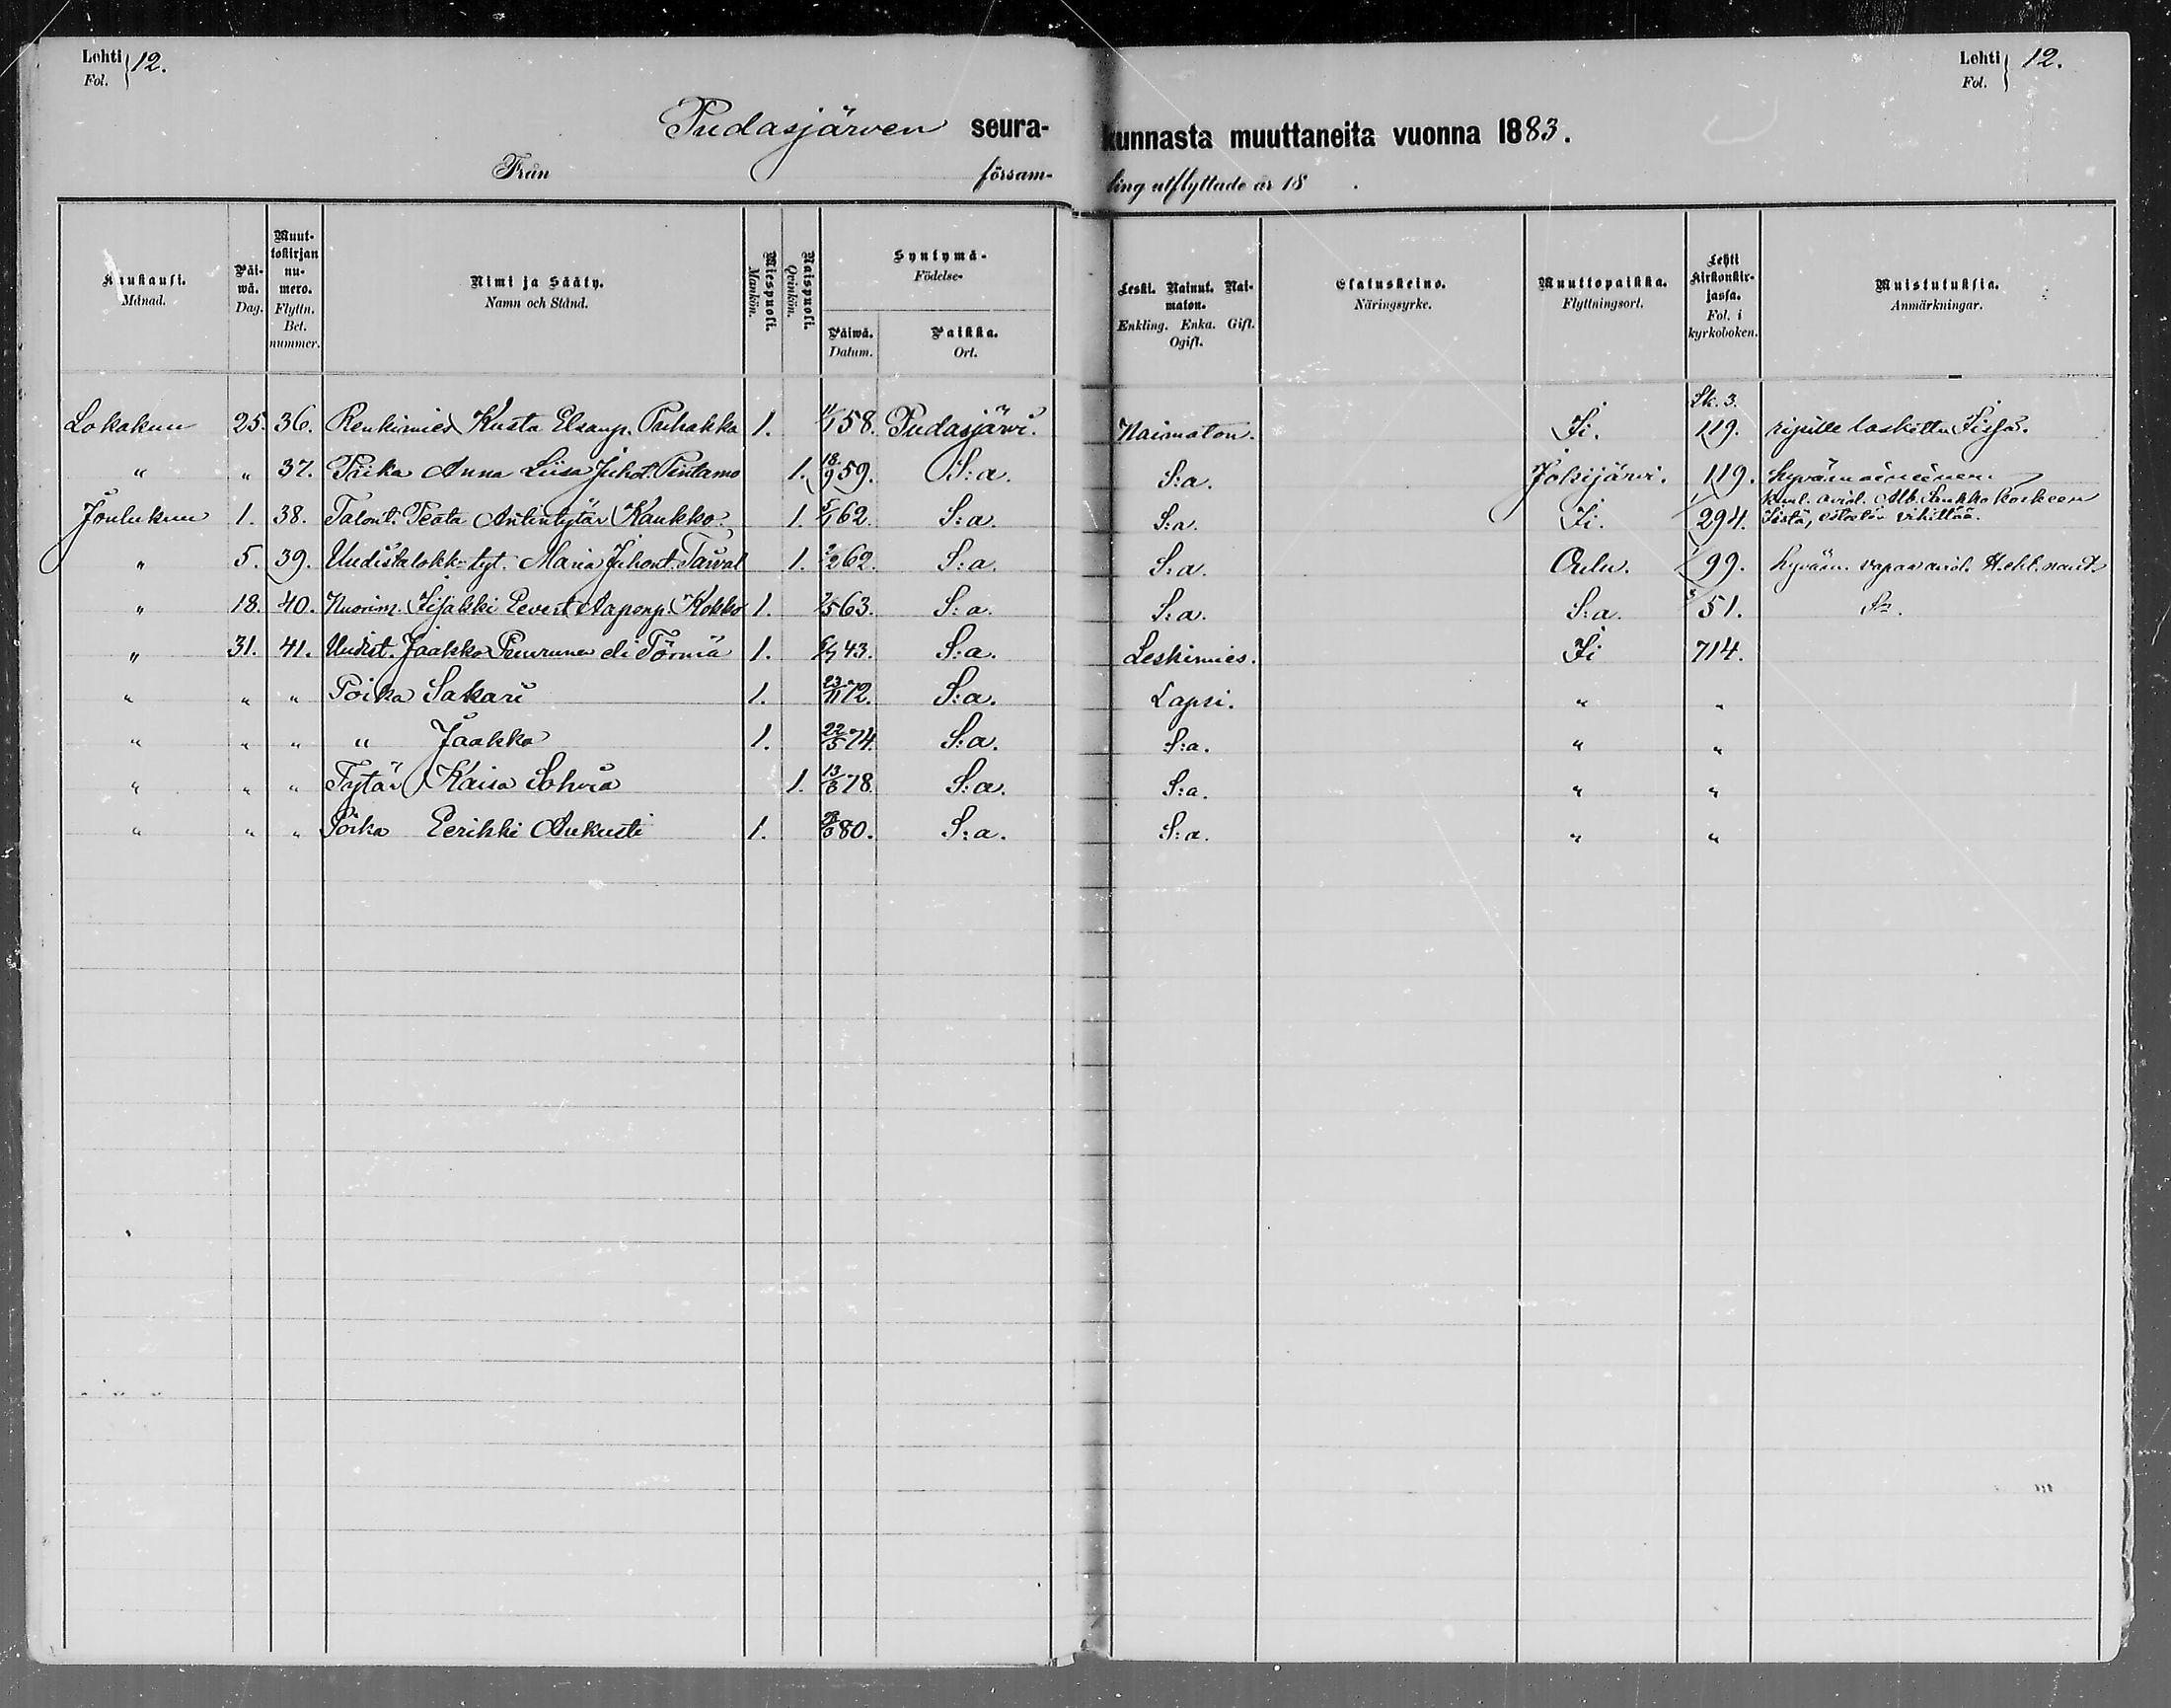 Lehti Fol. 12.
Lehti Fol. 12.
Pudasjärven seurakunnasta muuttaneita vuonna 1883.
Från församling utflyttade år 18 .
Kuukausi. Månad.
Päiwä. Dag.
Muuttokirjan numero. Flyttn. Bet. nummer.
Nimi ja Sääty. Namn och Stånd.
Miespuoli. Mankön.
Naispuoli. Qvinkön.
Syntymä- Födelse-
Päiwä. Datum.
Paikka. Ort.
Leski. Nainut. Naimaton. Enkling. Enka. Gift. Ogift.
Elatuskeino. Näringsyrke.
Muuttopaikka. Flyttningsort.
Lehti kirkonkirjassa. Fol. i kyrkoboken.
Muistutuksia. Anmärkningar.
Lk. 3.
Lokakuu 25. 36. Renkimies Kusta 1. 58. Pudasjärvi. Naimaton. Ii. 119. ripille laskettu Iissä.
" " 37. Piika Anna Liisa Juhot. Pintamo 1. 18/9 59. S:a. S:a. Jokijärvi. 119. hyvämaineinen
Joulukuu 1. 38. Talont. Teata Antintytär Kaukko. 1. 62. S:a. S:a. Ii. 294. Kuul. aviol. Alb. Iistä, vihittää.
" 5. 39. Uudistalokk. tyt. Maria Juhont. 1. 62. S:a. S:a. Oulu. 99. hyväm. vapaa aviol.
" 18. 40. Nuorim. Eevert Aaponp. Kokko 1. 63. S:a. S:a. S:a. 51.
" 31. 41. Uudist. Jaakko Törmä 1. 43. S:a. Leskimies. Ii 714.
" " " Poika Sakari 1. 23/11 72. S:a. Lapsi. " "
" " " " Jaakko 1. 22/5 74. S:a. S:a. " "
" " " Tytär Kaisa Sohvia 1. 78. S:a. S:a. " "
" " " Poika Eerikki Aukusti 1. 80. S:a. S:a. " "